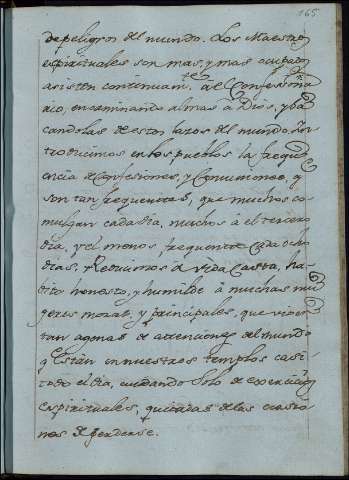 165
de peligros del mundo. Los Maestros
espirituales son mas, y mas ocupados
asisten continuamte. al Confesiona
rio, encaminando almas à Dios, y sa
candolas de estos lazos del mundo. In
troducimos en los pueblos la frequ
encia de Confesiones, y Comuniones, y
son tan frequentes, que muchos co
mulgan cada dia, muchos à el tercero
dia, y el menos, frequente cada ocho
dias, Reducimos à vida Casta, ha
bito honesto, y humilde à muchas mu
geres mozas, y principales, que vivi
tan agenas de atenciones del mundo
q. Están en nuestros templos casi
todo el dia, cuidando solo de exercicios
espirituales, quitadas de las cuasio
nes de perderse.